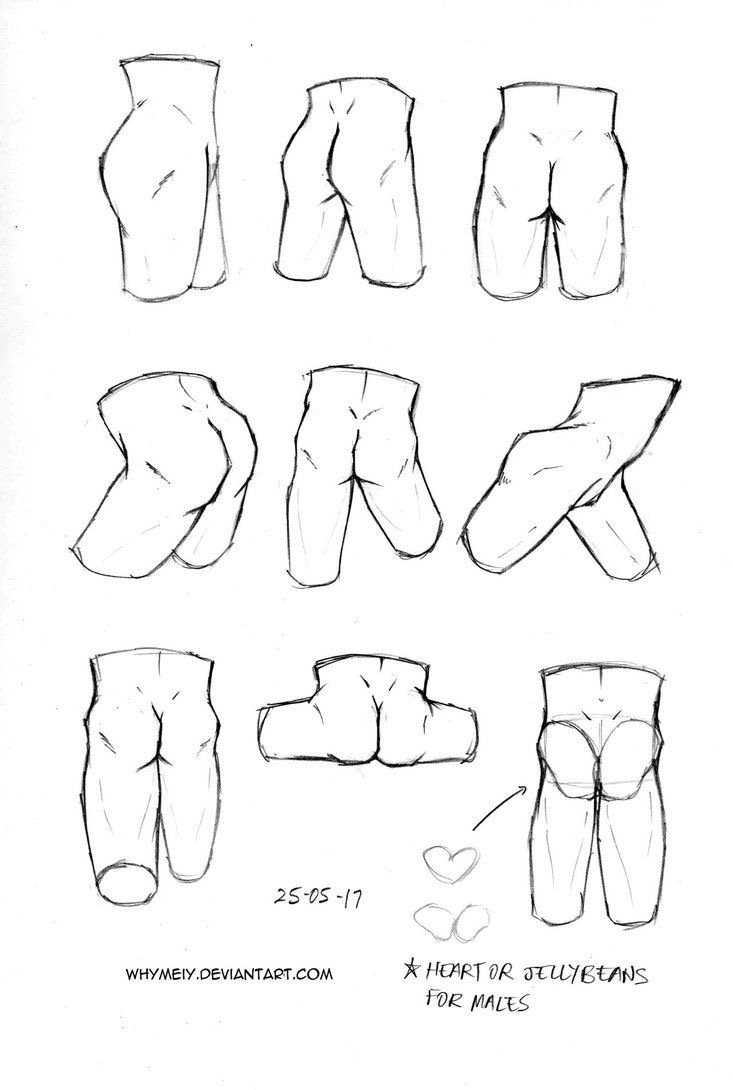 25-05-17
WHYMEIY.DEVIANTART.COM
☆ HEART OR JELLYBEANS
FOR MALES